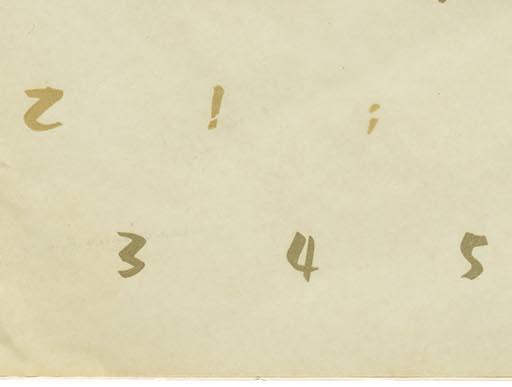 Z ! ;
3 4 5